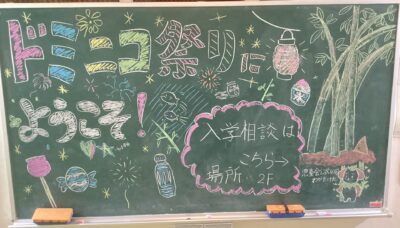 ドミニコ祭りに
ようこそ!
入学相談は
こちら→
場所 2F